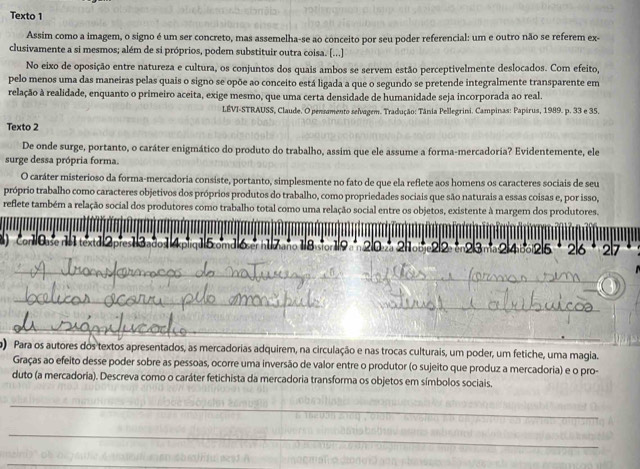 Texto 1
Assim como a imagem, o signo é um ser concreto, mas assemelha-se ao conceito por seu poder referencial: um e outro não se referem ex-
clusivamente a si mesmos; além de si próprios, podem substituir outra coisa. [...]
No eixo de oposição entre natureza e cultura, os conjuntos dos quais ambos se servem estão perceptivelmente deslocados. Com efeito,
pelo menos uma das maneiras pelas quais o signo se opõe ao conceito está ligada a que o segundo se pretende integralmente transparente em
relação à realidade, enquanto o primeiro aceita, exige mesmo, que uma certa densidade de humanidade seja incorporada ao real.
LÉVI-STRAUSS, Claude. O pensamento selvagem. Tradução: Tânia Pellegrini. Campinas: Papirus, 1989. p. 33 e 35.
Texto 2
De onde surge, portanto, o caráter enigmático do produto do trabalho, assim que ele assume a forma-mercadoria? Evidentemente, ele
surge dessa própria forma.
O caráter misterioso da forma-mercadoria consiste, portanto, simplesmente no fato de que ela reflete aos homens os caracteres sociais de seu
próprio trabalho como caracteres objetivos dos próprios produtos do trabalho, como propriedades sociais que são naturais a essas coisas e, por isso,
reflete também a relação social dos produtores com o trabalho total como uma relação social entre os objetos, existente à margem dos produtores.
10 11 12 13 14 15 16 17 18 19 20 21 22 23 24 25 26 27
A transformação da natureza em objetos e formas sim
bólicas ocorre pela manipula material e atribuição
de significado.
Para os autores dos textos apresentados, as mercadorias adquirem, na circulação e nas trocas culturais, um poder, um fetiche, uma magia.
Graças ao efeito desse poder sobre as pessoas, ocorre uma inversão de valor entre o produtor (o sujeito que produz a mercadoria) e o pro-
duto (a mercadoria). Descreva como o caráter fetichista da mercadoria transforma os objetos em símbolos sociais.